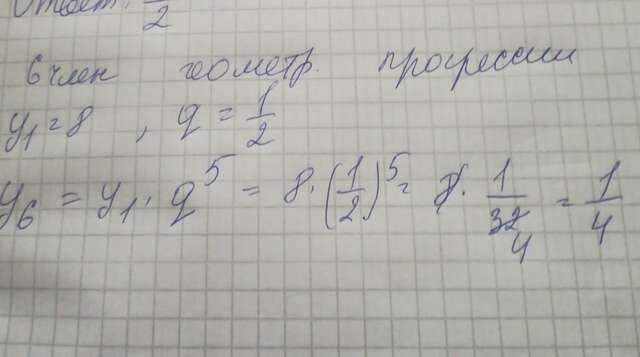 Ответ: 1/2
6 член геометр. прогрессии
y₁ = 8 , q = 1/2
y₆ = y₁ · q⁵ = 8 · (1/2)⁵ = 8 · 1/32 4 = 1/4